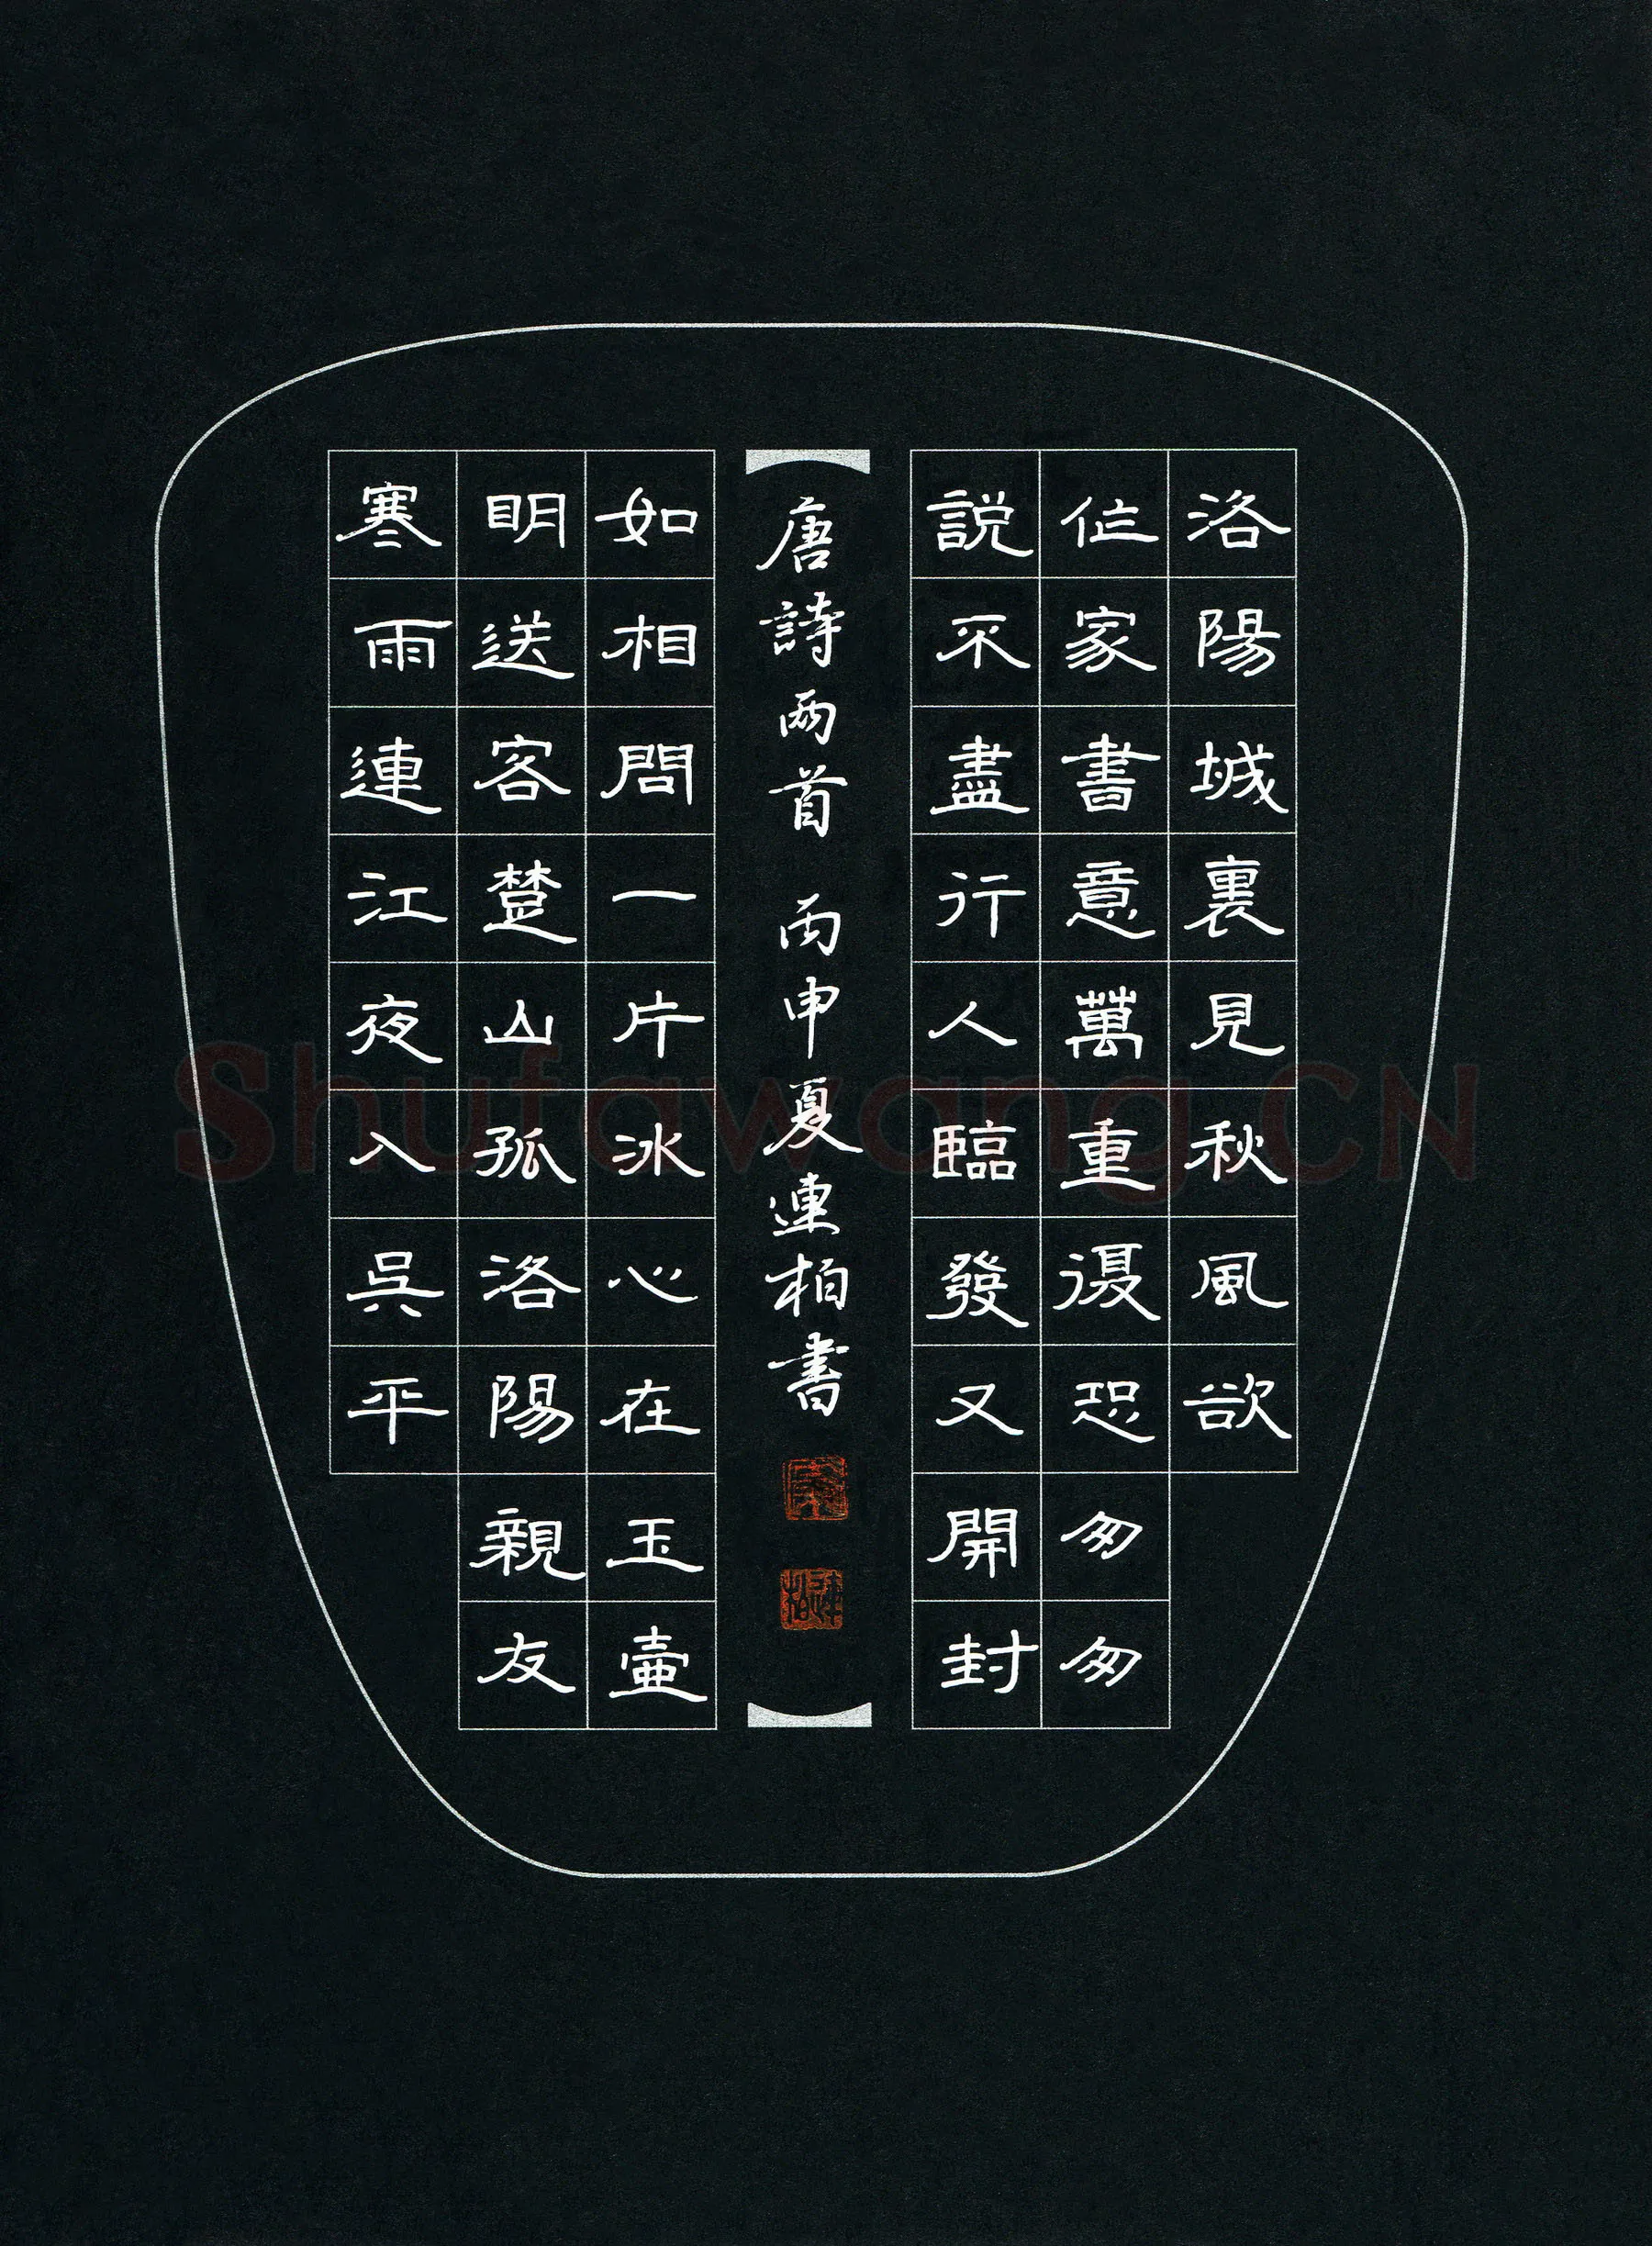 洛陽城裏見秋風欲
作家書意萬重復恐匆匆
説不盡行人臨發又開封
唐詩兩首 丙申夏連柏書
如相問一片冰心在玉壺
明送客楚山孤洛陽親友
寒雨連江夜入吳平
Shufawang.CN